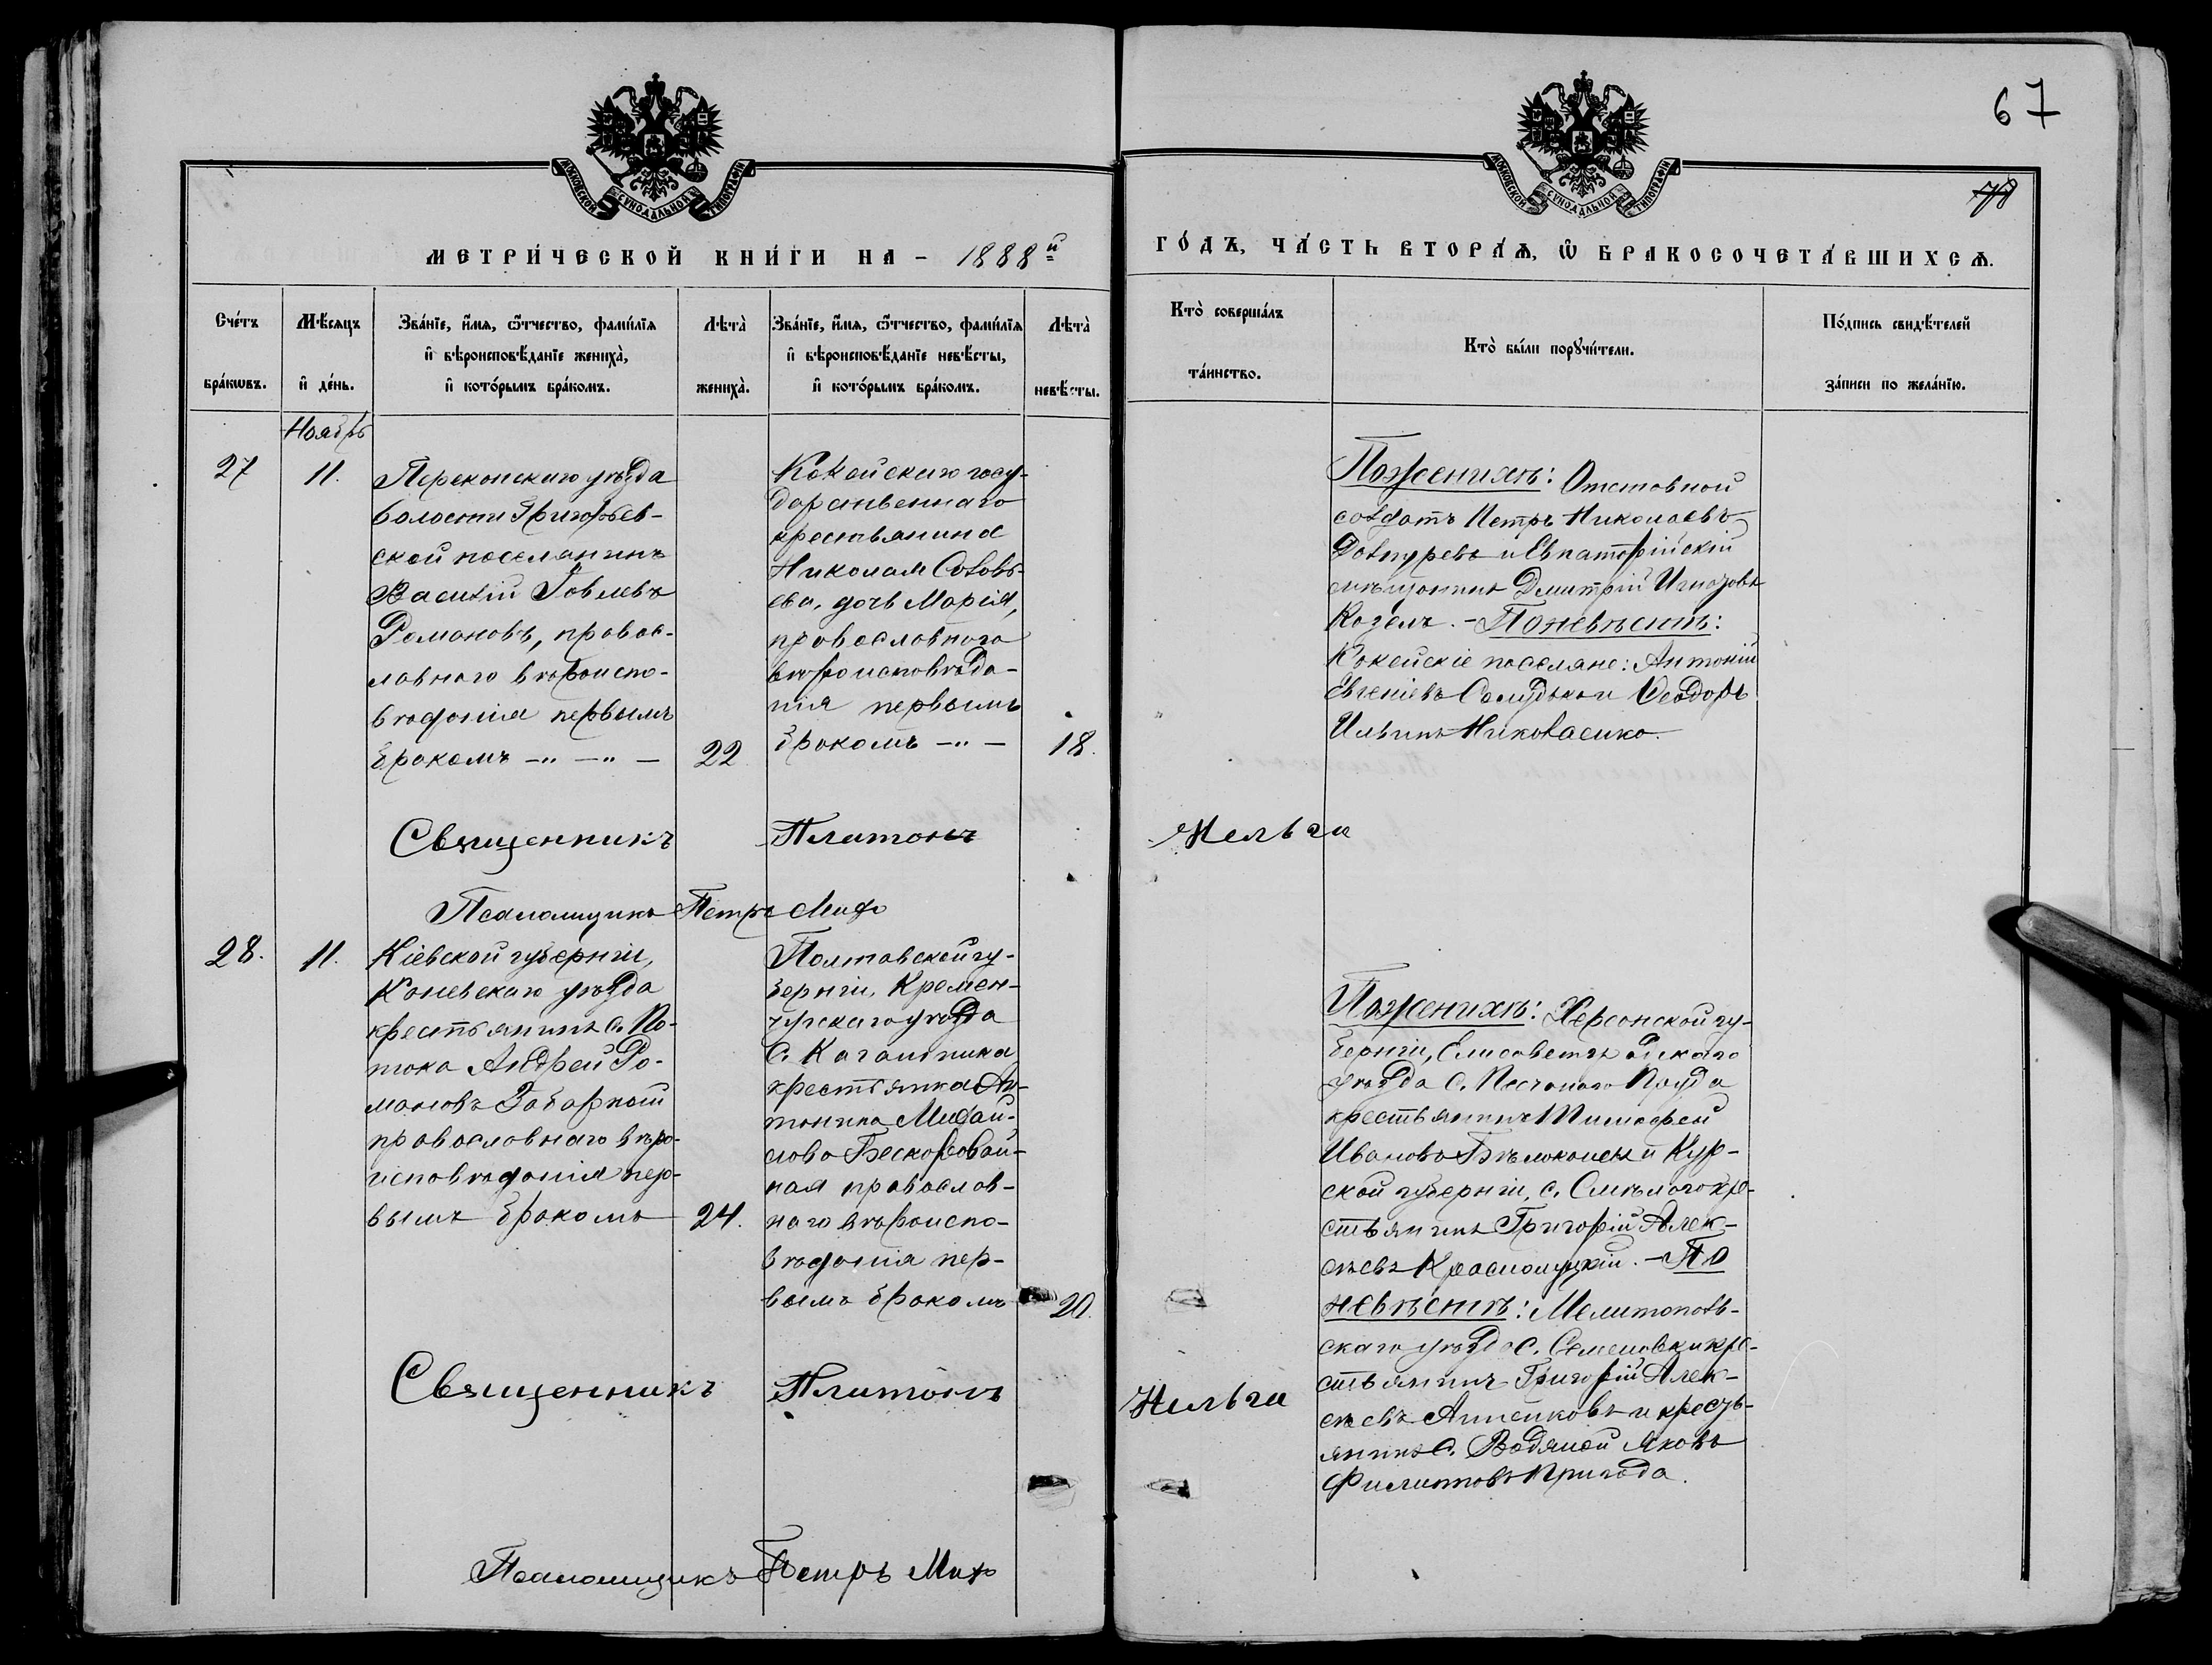 67
МОСКОВСКОЙ СѴНОДАЛЬНОЙ ТИПОГРАФІИ
МОСКОВСКОЙ СѴНОДАЛЬНОЙ ТИПОГРАФІИ
МЕТРИ́ЧЕСКОЙ КНИ́ГИ НА - 1888й
ГО́ДЪ, ЧА́СТЬ ВТОРА́Ѧ, Ѿ БРАКОСОЧЕТА́ВШИХСѦ.
Сче́тъ бра́кѡвъ.
Мѣ́сяцъ и҆ де́нь.
Зва́нїе, и҆́мя, ѻ҆́тчество, фами́лїя
и҆ вѣроисповѣ́данїе жениха̀,
и҆ кото́рымъ бра́комъ.
Лѣта̀ жениха̀.
Зва́нїе, и҆́мя, ѻ҆́тчество, фами́лїя
и҆ вѣроисповѣ́данїе невѣ́сты,
и҆ кото́рымъ бра́комъ.
Лѣта̀ невѣ́сты.
Кто̀ соверша́лъ та́инство.
Кто̀ бы́ли порꙋчи́тели.
По́дпись свидѣ́телей за́писи по жела́нїю.
Ноябрь
27
11.
Перекопскаго уѣзда
волости Григорьев-
ской поселянинъ
Василій Іовлевъ
Романовъ, правос-
лавнаго вѣроиспо-
вѣданія первымъ
бракомъ -"- -"- -
22
госу-
дарственнаго
крестьянина
Николая Соловь-
ева, дочь Марія,
православнаго
вѣроисповѣда-
нія первымъ
бракомъ -"-
18.
По женихѣ: Отставной
солдатъ Петръ Николаевъ
и Евпаторійскій
мѣщанинъ Дмитрій
Козелъ. - По невѣстѣ:
поселяне: Антоній
Евгеніевъ и Ѳеодоръ
Ильинъ Николаенко.
Священникъ Платонъ
Псаломщикъ Петръ
28.
11.
Кіевской губерніи,
Каневскаго уѣзда
крестьянинъ с. По-
тока Андрей Ро-
мановъ Забарный
православнаго вѣро-
исповѣданія пер-
вымъ бракомъ
24.
Полтавской гу-
берніи, Кремен-
чугскаго уѣзда
с.
крестьянка Ан-
тонина Михай-
лова Бескоровай-
ная православ-
наго вѣроиспо-
вѣданія пер-
вымъ бракомъ
20.
По женихѣ: Херсонской гу-
берніи, Елисаветградскаго
уѣзда с. Песчанаго Брода
крестьянинъ Тимофей
Ивановъ и Кур-
ской губерніи, с. кре-
стьянинъ Григорій Алек-
сѣевъ - По
невѣстѣ: Мелитополь-
скаго уѣзда с. Семеновки кре-
стьянинъ Григорій Алек-
сѣевъ Анненковъ и кресть-
янинъ с. Водяной Яковъ
Филиповъ Пригода.
Священникъ Платонъ
Псаломщикъ Петръ